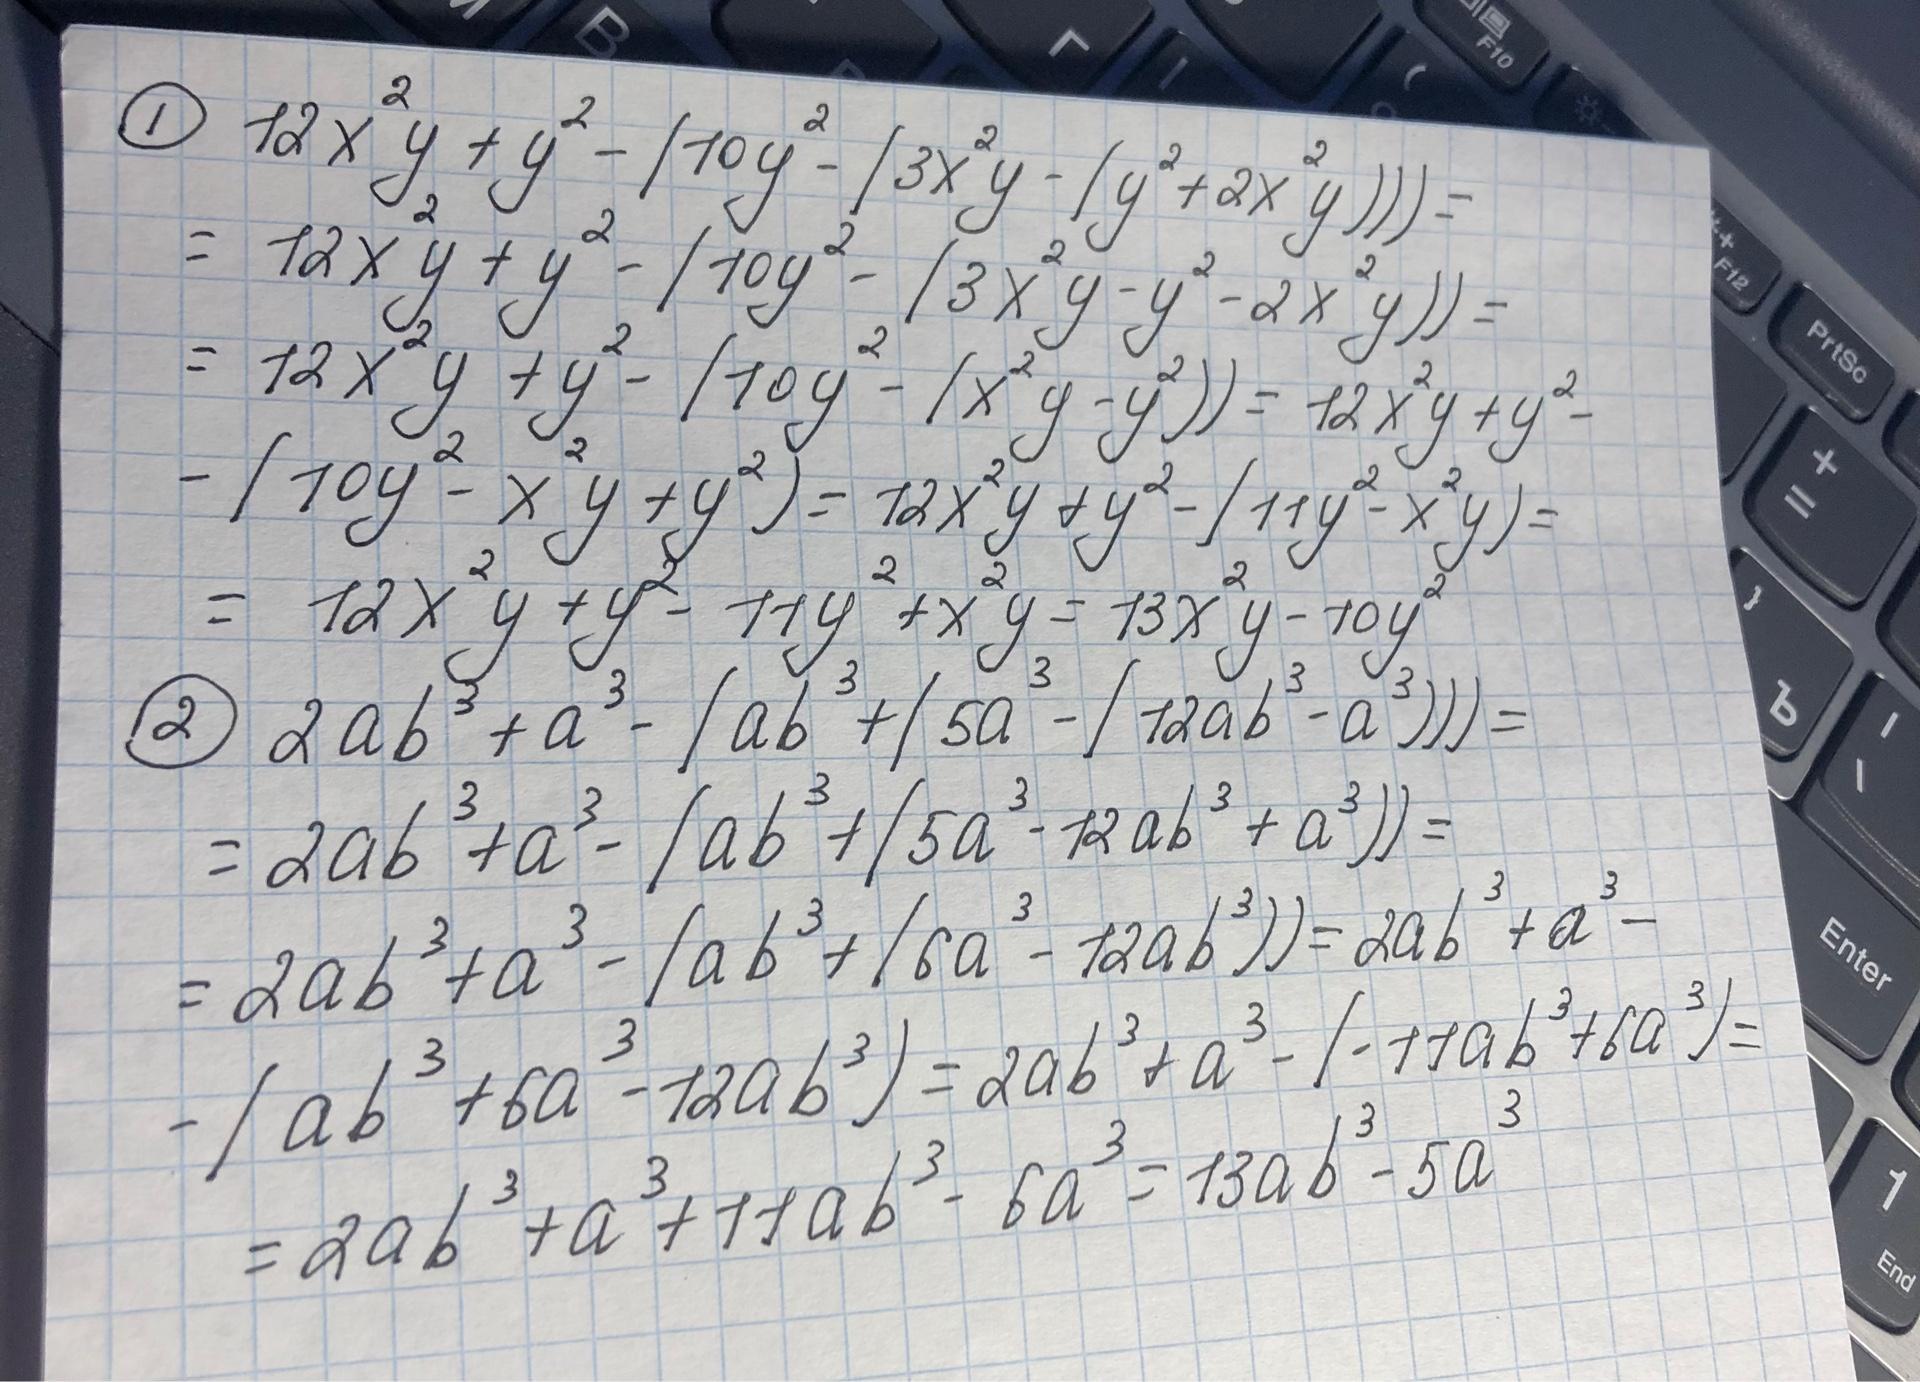 В
Г
F10
① 12x²y + y² - (10y² - (3x²y - (y² + 2x²y))) =
= 12x²y + y² - (10y² - (3x²y - y² - 2x²y)) =
= 12x²y + y² - (10y² - (x²y - y²)) = 12x²y + y² -
- (10y² - x²y + y²) = 12x²y + y² - (11y² - x²y) =
= 12x²y + y² - 11y² + x²y = 13x²y - 10y²
② 2ab³ + a³ - (ab³ + (5a³ - (12ab³ - a³))) =
= 2ab³ + a³ - (ab³ + (5a³ - 12ab³ + a³)) =
= 2ab³ + a³ - (ab³ + (6a³ - 12ab³)) = 2ab³ + a³ -
- (ab³ + 6a³ - 12ab³) = 2ab³ + a³ - (-11ab³ + 6a³) =
= 2ab³ + a³ + 11ab³ - 6a³ = 13ab³ - 5a³
F12
PrtSc
+
=
}
Ъ
Enter
1
End